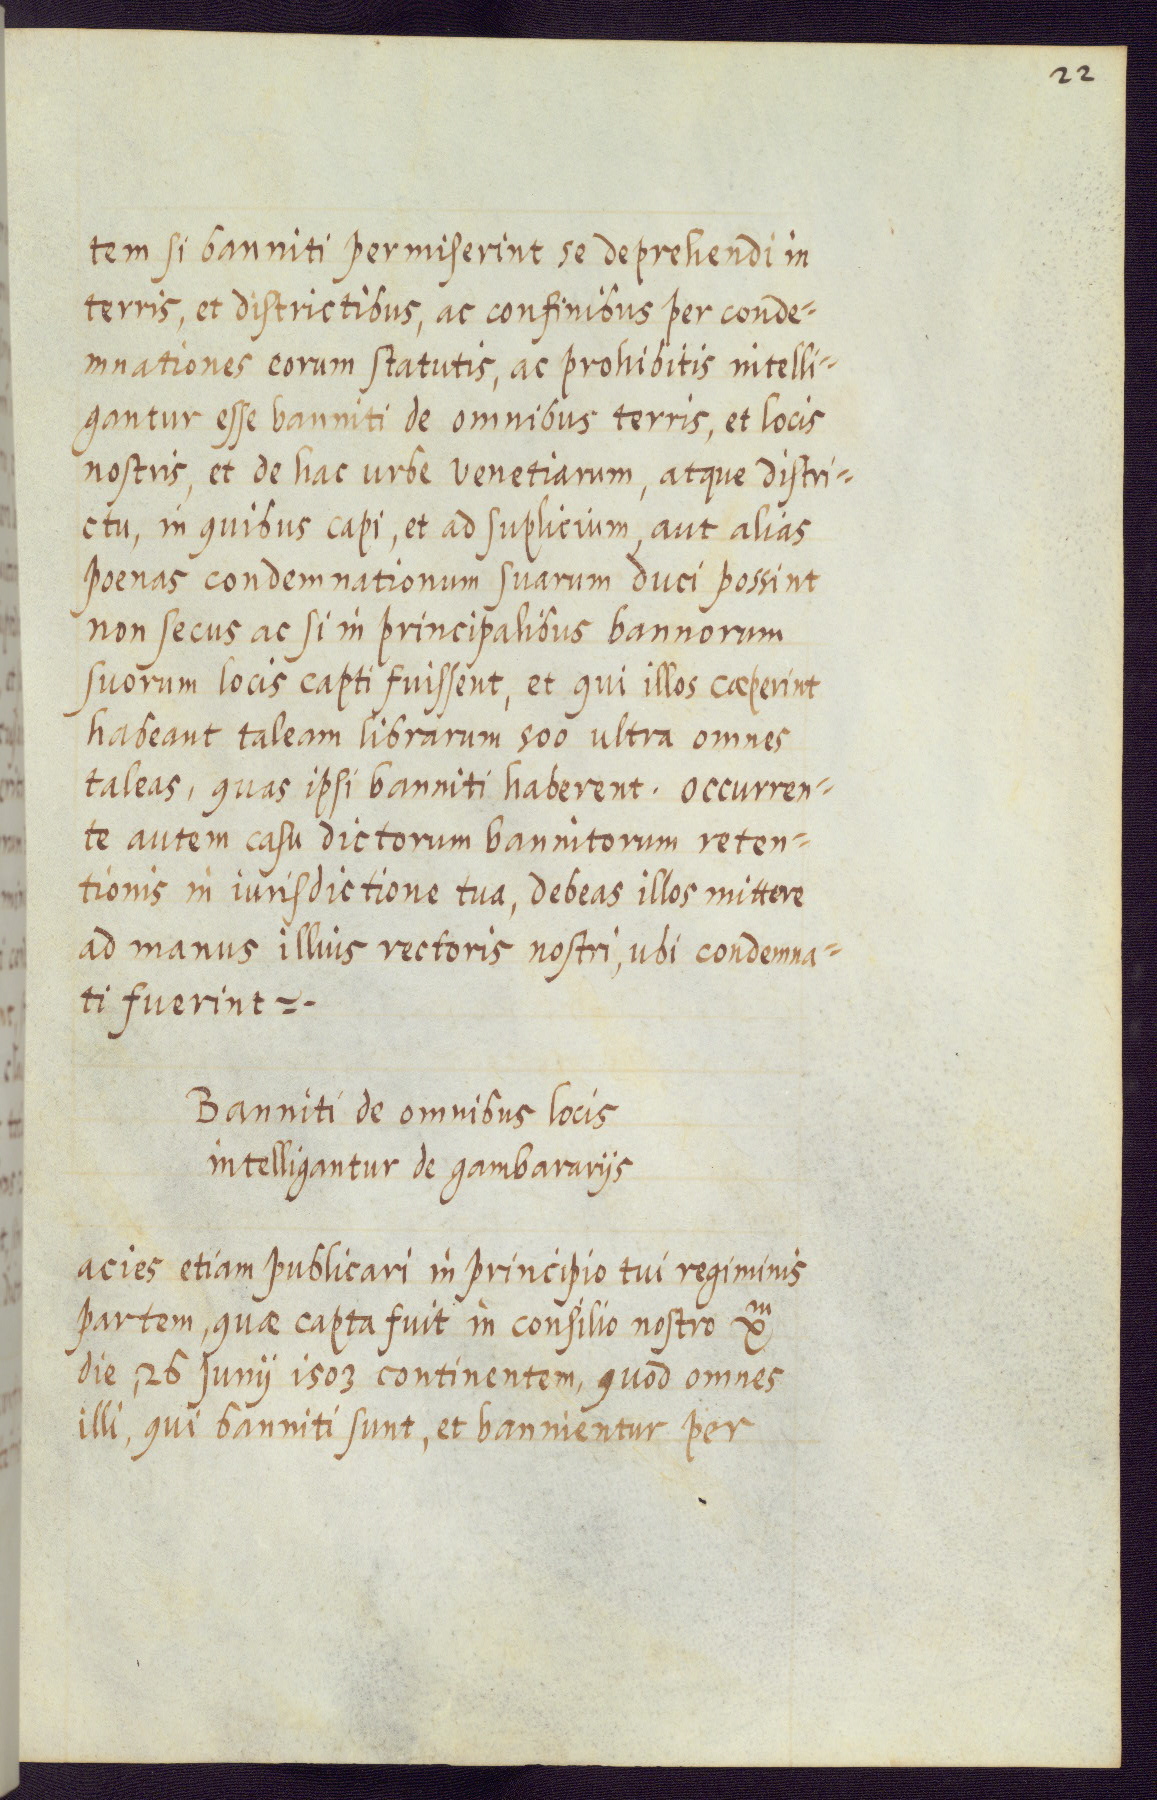 22
tem si banniti permiserint se deprehendi in
terris, et districtibus, ac confinibus per conde=
mnationes eorum statutis, ac prohibitis intelli=
gantur esse banniti de omnibus terris, et locis
nostris, et de hac urbe Venetiarum, atque distri=
ctu, in quibus capi, et ad suplicium, aut alias
poenas condemnationum suarum duci possint
non secus ac si in principalibus bannorum
suorum locis capti fuissent, et qui illos cæperint
habeant taleam librarum 500 ultra omnes
taleas, quas ipsi banniti haberent. occurren=
te autem casu dictorum bannitorum reten=
tionis in iurisdictione tua, debeas illos mittere
ad manus illius rectoris nostri, ubi condemna=
ti fuerint =.
Banniti de omnibus locis
intelligantur de gambararijs
acies etiam publicari in principio tui regiminis
partem, quæ capta fuit in consilio nostro Xᵐ
die, 26 Junij 1503 continentem, quod omnes
illi, qui banniti sunt, et bannientur per